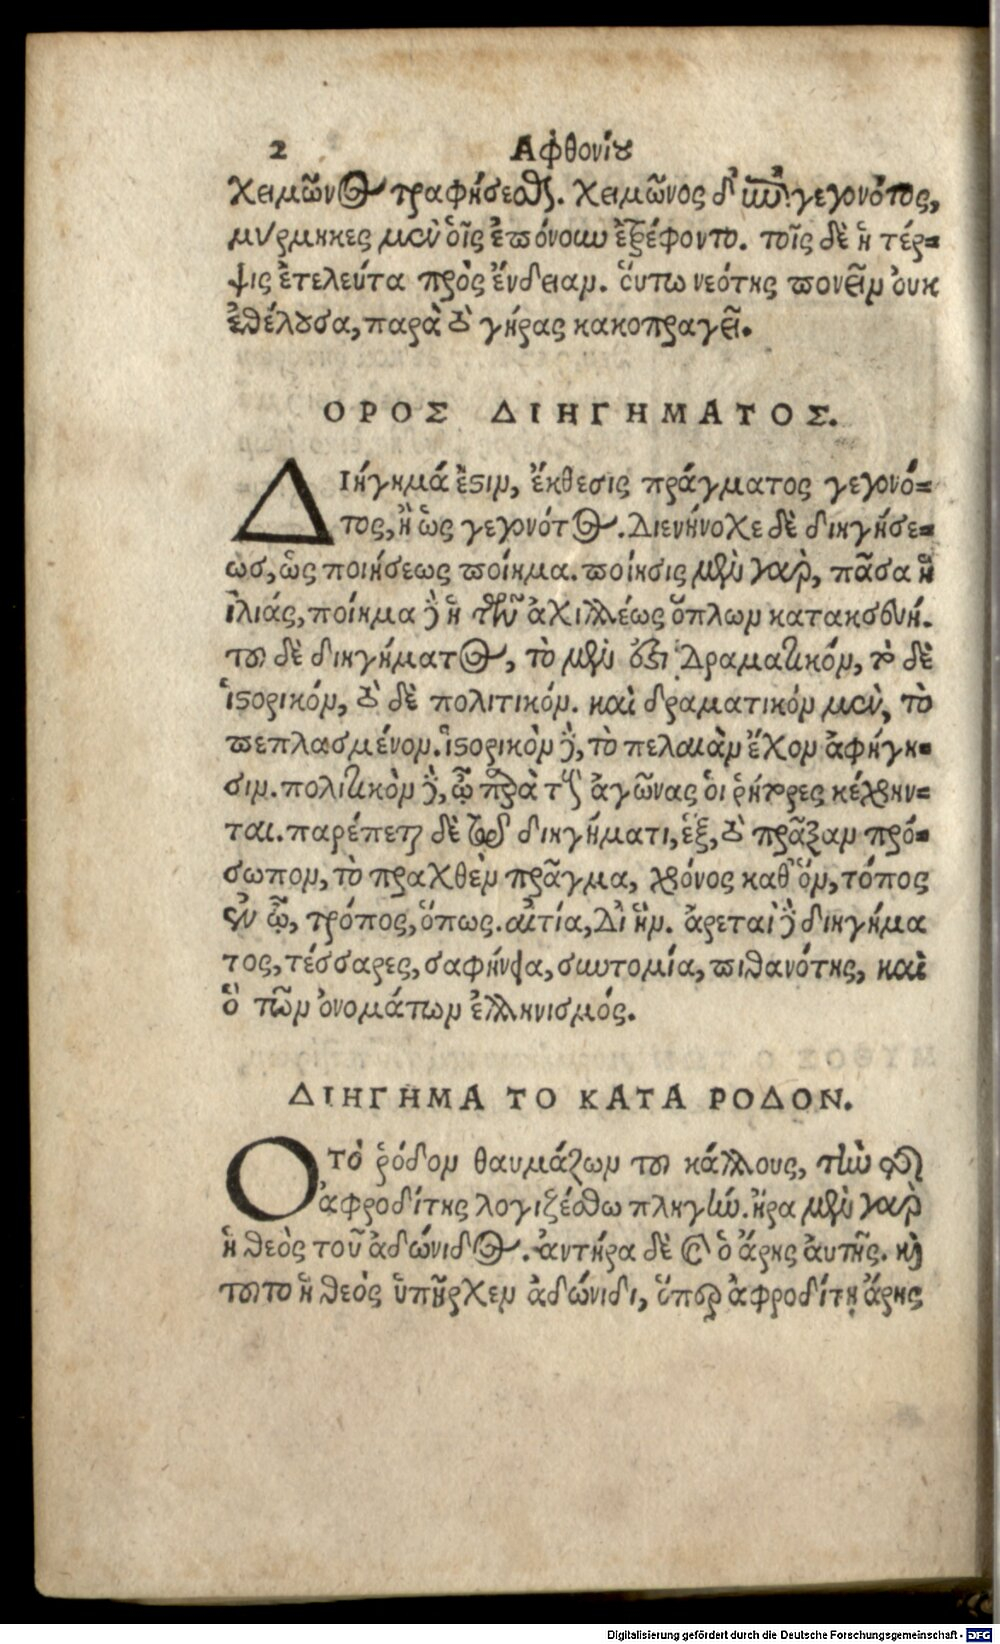 2 Αφθονίου
χειμῶνος τραφήσεσθαι. χειμῶνος δὲ γεγονότος,
μύρμηκες μὲν οἷς ἐπόνουν ἐτρέφοντο. τοῖς δὲ ἡ τέρ-
ψις ἐτελεύτα πρὸς ἔνδειαν. οὕτω νεότης πονεῖν ὀυκ
ἐθέλουσα, παρὰ τὸ γήρας κακοπραγεῖ.
ΟΡΟΣ ΔΙΗΓΗΜΑΤΟΣ.
ΔΙήγημά ἐστιν, ἔκθεσις πράγματος γεγονό-
τος, ἢ ὡς γεγονότος. Διενήνοχε δὲ διηγήσε-
ως, ὡς ποιήσεως ποίημα. ποίησις μὲν γὰρ, πᾶσα ἡ
ἰλιάς, ποίημα δὲ ἡ τῶν ἀχιλλέως ὅπλων κατασκευή.
του δὲ διηγήματος, τὸ μέν ἐστι Δραματικόν, τὸ δὲ
ἱστορικόν, τὸ δὲ πολιτικόν. καὶ δραματικόν μὲν, τὸ
πεπλασμένον. ἱστορικὸν δὲ, τὸ πελαιὰν ἔχον ἀφήγη-
σιν. πολιτικὸν δὲ, ᾧ παρὰ τοὺς ἀγῶνας ὁι ῥήτορες κέχρην-
ται. παρέπεται δὲ τῷ διηγήματι, ἓξ, τὸ πρᾶξαν πρό-
σωπον, τὸ πραχθὲν πρᾶγμα, χρόνος καθ᾽ ὃν, τόπος
ἐν ᾧ, τρόπος, ὅπως. αἰτία, Δι ἥν. ἀρεταὶ δὲ διηγήμα
τος, τέσσαρες, σαφήνεια, συντομία, πιθανότης, καὶ
ὁ τῶν ὀνομάτων ἑλληνισμός.
ΔΙΗΓΗΜΑ ΤΟ ΚΑΤΑ ΡΟΔΟΝ.
Ο τὸ ῥόδον θαυμάζων του κάλλους, τὴν
ἀφροδίτης λογιζέσθω πληγήν. ἤρα μὲν γὰρ
ἡ θεὸς τοῦ ἀδώνιδος. ἀντήρα δὲ καὶ ὁ ἄρης ἀυτῆς. καὶ
τουτο ἡ θεός ὑπῆρχεν ἀδώνιδι, ὅπερ ἀφροδίτῃ ἄρης